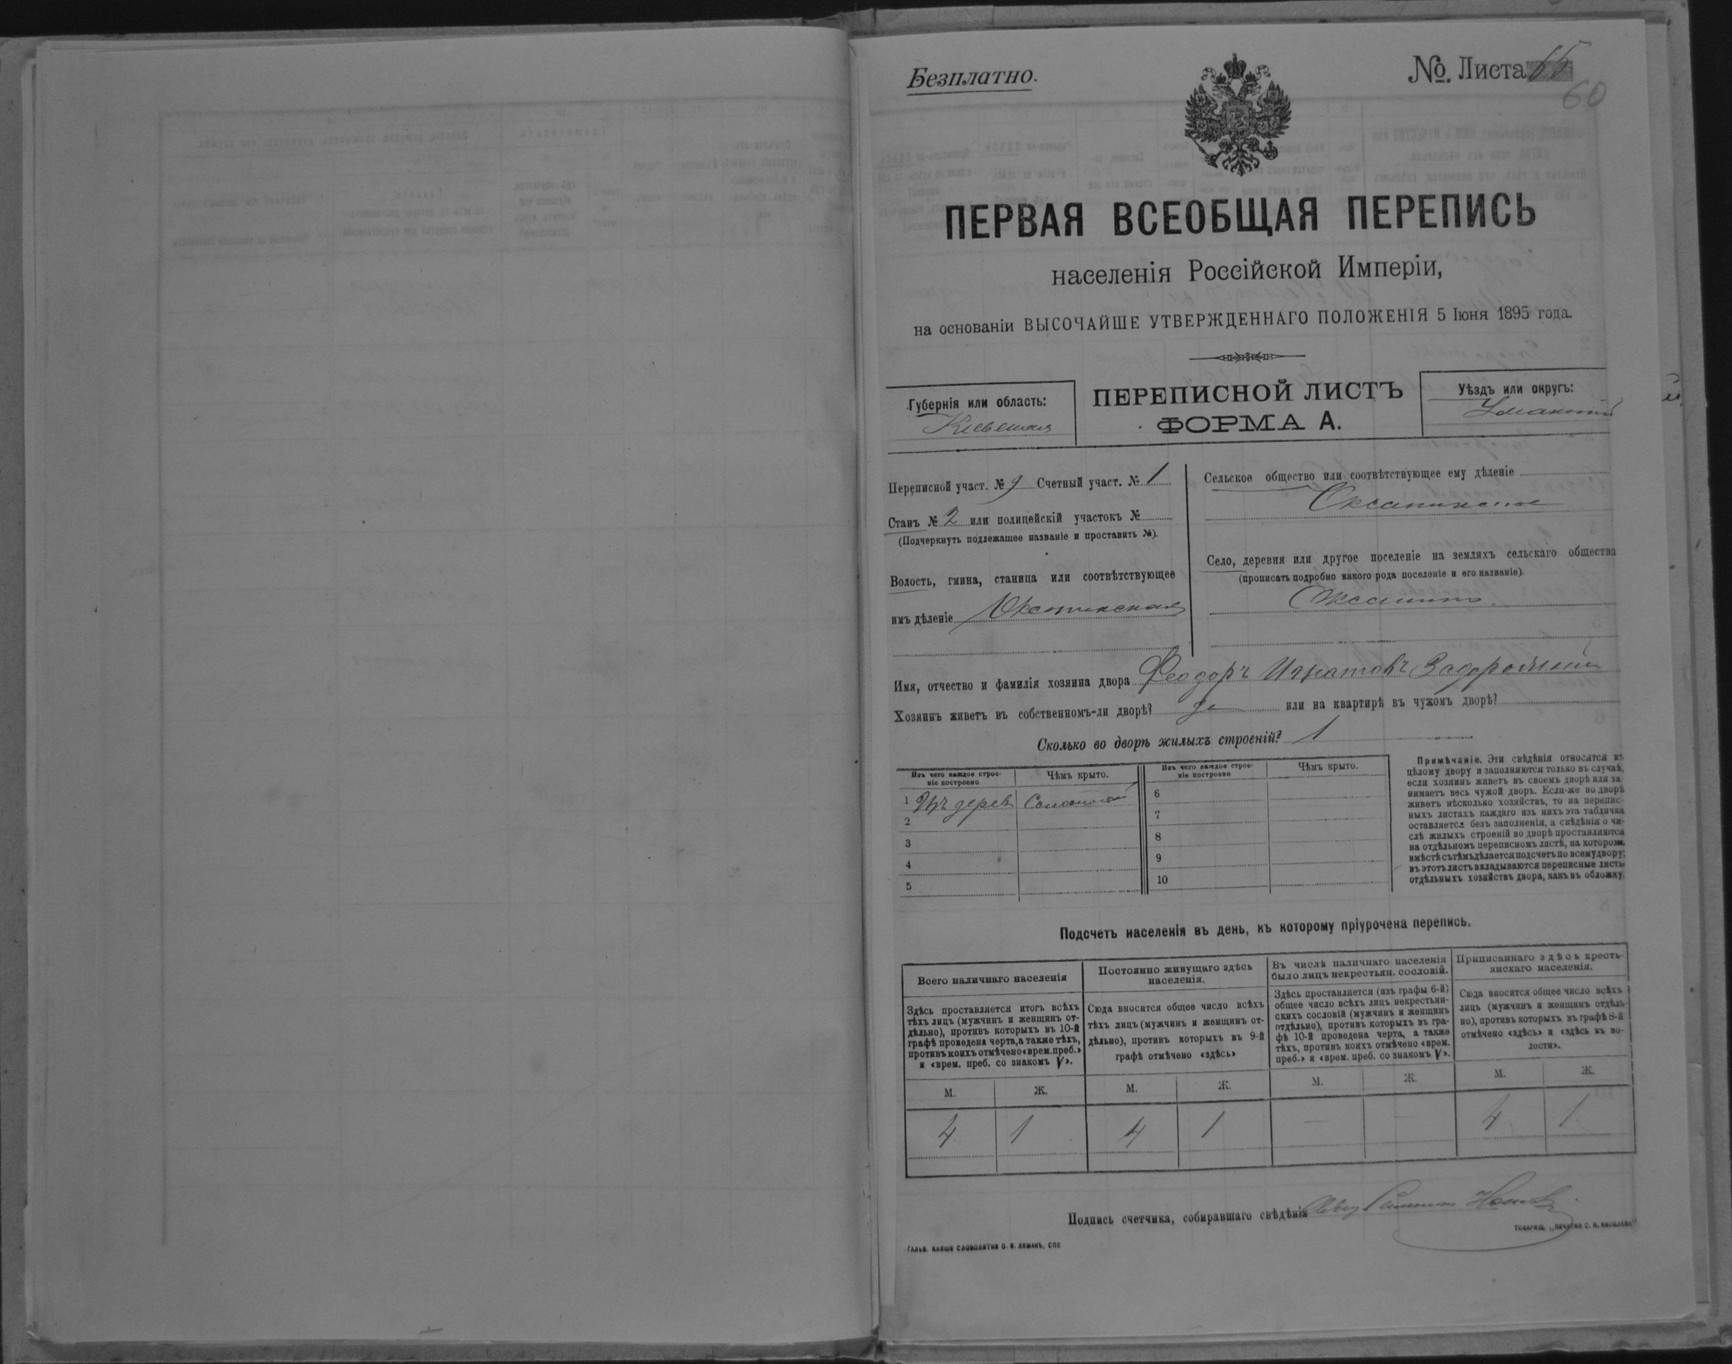 Безплатно.
№. Листа 55
60
ПЕРВАЯ ВСЕОБЩАЯ ПЕРЕПИСЬ
населенія Россійской Имперіи,
на основаніи ВЫСОЧАЙШЕ УТВЕРЖДЕННАГО ПОЛОЖЕНІЯ 5 Іюня 1895 года.
Губернія или область:
Кіевская
ПЕРЕПИСНОЙ ЛИСТЪ
ФОРМА А.
Уѣздъ или округъ:
Уманскій
Переписной участ. № Счетный участ. № 1
Станъ № 2 или полицейскій участокъ №
(Подчеркнуть подлежащее названіе и проставить №).
Волость, гмина, станица или соотвѣтствующее
имъ дѣленіе
Сельское общество или соотвѣтствующее ему дѣленіе
Оксанинское
Село, деревня или другое поселеніе на земляхъ сельскаго общества
(прописать подробно какого рода поселеніе и его названіе).
Оксанино.
Имя, отчество и фамилія хозяина двора Феодоръ Игнатовъ Задорожній
Хозяинъ живетъ въ собственномъ-ли дворѣ? да или на квартирѣ въ чужомъ дворѣ?
Сколько во дворѣ жилыхъ строеній? 1
Изъ чего каждое строе-
ніе построено
Чѣмъ крыто.
Изъ чего каждое строе-
ніе построено
Чѣмъ крыто.
1 Изъ дерев Соломой
2
3
4
5
6
7
8
9
10
Примѣчаніе. Эти свѣдѣнія относятся къ
цѣлому двору и заполняются только въ случаѣ,
если хозяинъ живетъ въ своемъ дворѣ или за-
нимаетъ весь чужой дворъ. Если-же во дворѣ
живетъ нѣсколько хозяйствъ, то на перепис-
ныхъ листахъ каждаго изъ нихъ эта табличка
оставляется безъ заполненія, а свѣдѣнія о чи-
слѣ жилыхъ строеній во дворѣ проставляются
на отдѣльномъ переписномъ листѣ, на которомъ
вмѣстѣ съ тѣмъ дѣлается подсчетъ по всему двору;
въ этотъ листъ вкладываются переписные листы
отдѣльныхъ хозяйствъ двора, какъ въ обложку.
Подсчетъ населенія въ день, къ которому пріурочена перепись.
Всего наличнаго населенія
Здѣсь проставляется итогъ всѣхъ
тѣхъ лицъ (мужчинъ и женщинъ от-
дѣльно), противъ которыхъ въ 10-й
графѣ проведена черта, а также тѣхъ,
противъ коихъ отмѣчено «врем. преб.»
и «врем. преб. со знакомъ V».
Постоянно живущаго здѣсь
населенія.
Сюда вносится общее число всѣхъ
тѣхъ лицъ (мужчинъ и женщинъ от-
дѣльно), противъ которыхъ въ 9-й
графѣ отмѣчено «здѣсь»
Въ числѣ наличнаго населенія
было лицъ некрестьян. сословій.
Здѣсь проставляется (изъ графы 6-й)
общее число всѣхъ лицъ некрестьян-
скихъ сословій (мужчинъ и женщинъ
отдѣльно), противъ которыхъ въ гра-
фѣ 10-й проведена черта, а также
тѣхъ, противъ коихъ отмѣчено «врем.
преб.» и «врем. преб. со знакомъ V».
Приписаннаго здѣсь кресть-
янскаго населенія.
Сюда вносится общее число всѣхъ
лицъ (мужчинъ и женщинъ отдѣль-
но), противъ которыхъ въ графѣ 8-й
отмѣчено «здѣсь» и «здѣсь къ во-
лости».
М. Ж. М. Ж. М. Ж. М. Ж.
4 1 4 1 — — 4 1
Подпись счетчика, собиравшаго свѣдѣнія
ТОВАРИЩ. „ПЕЧАТНЯ С. П. ЯКОВЛЕВА“
ГАЛЬВ. КЛИШЕ СЛОВОЛИТНИ О. И. ЛЕМАНЪ, СПБ.